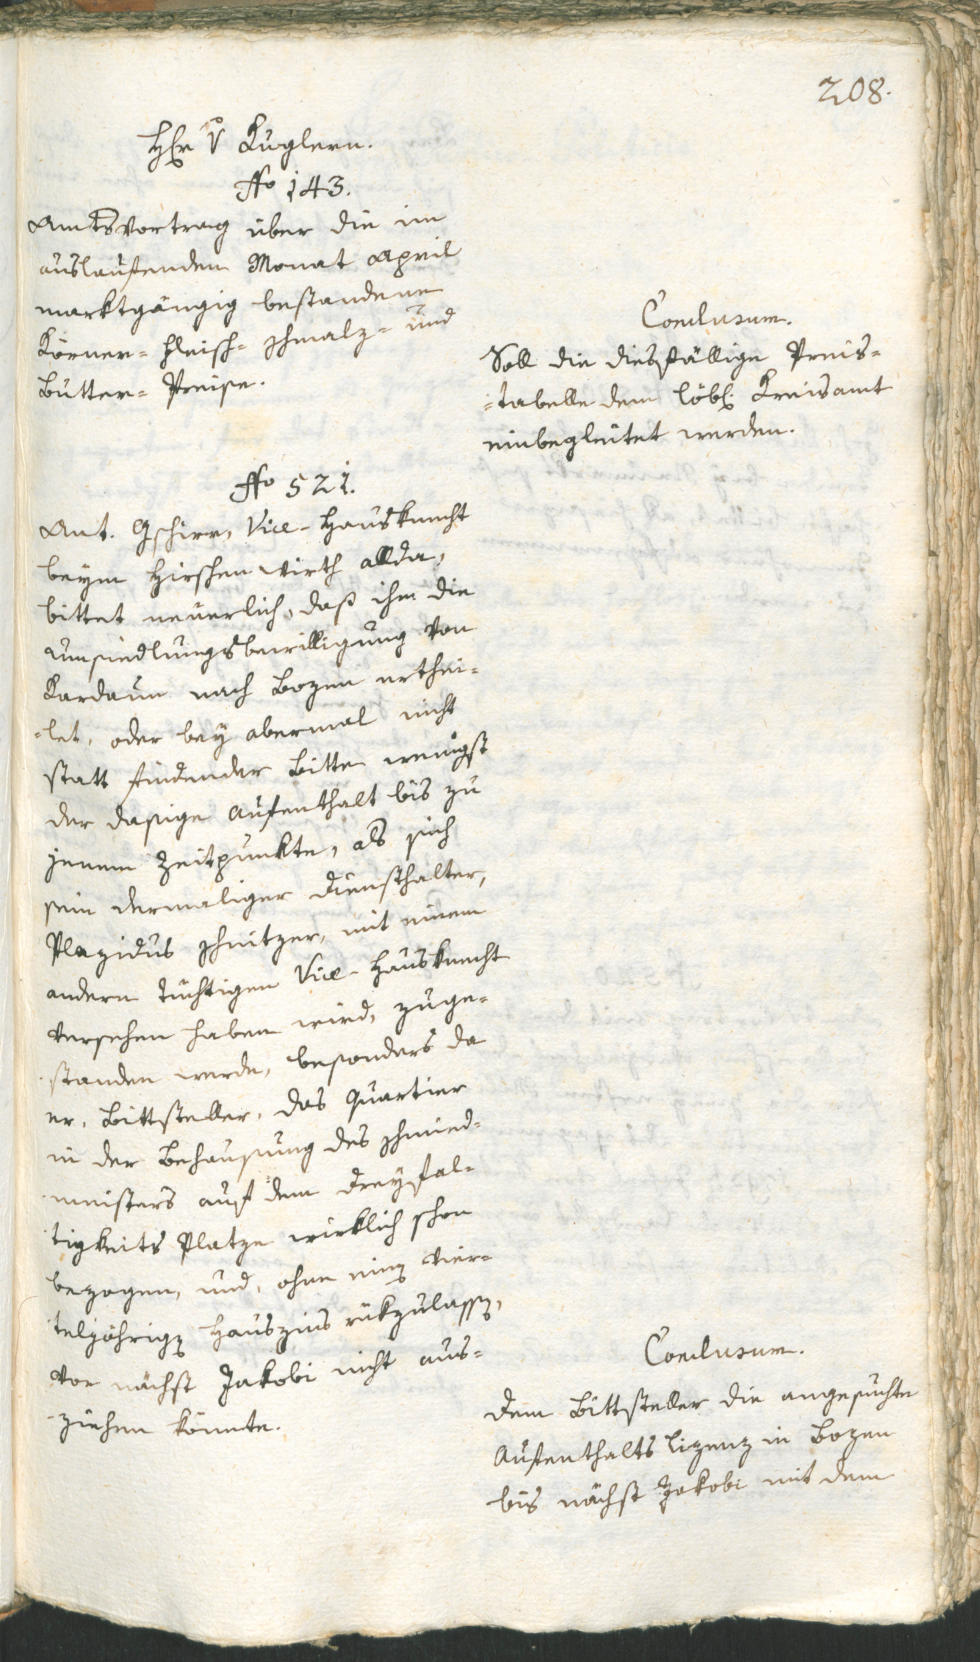 208.
H͠r v Kuglern.
No 143.
Amtsvortrag über die im
auslaufenden Monat April
marktgängig bestandene
Körner- Fleisch- Schmalz- und
Butter- Preise.
Conclusum.
Soll die diesfällige Preis-
-tabelle dem löbl. Kreisamt
einbegleitet werden.
No 521.
Ant. Gschirr, Vice-Hausknecht
beym Hirschenwirth allda,
bittet neuerlich, daß ihm die
Umsiedlungsbewilligung von
Kardaun nach Bozen erthei-
-let, oder bey abermal nicht
statt findender Bitte wenigst
der dasige Aufenthalt bis zu
jenem Zeitpunkte, als sich
sein dermaliger Diensthalter,
Plazidus Schnitzer, mit einem
andern tüchtigen Vice-Hausknecht
versehen haben wird, zuge-
standen werde, besonders da
er, Bittsteller, das Quartier
in der Behausung des Schmied-
meisters auf dem Dreyfal-
tigkeits Platze wirklich schon
bezogen, und, ohne einen vier-
teljährigen Hauszins rükzulassen,
vor nächst Jakobi nicht aus-
-ziehen könnte.
Conclusum.
Dem Bittsteller die angesuchte
Aufenthalts lizenz in Bozen
bis nächst Jakobi mit dem